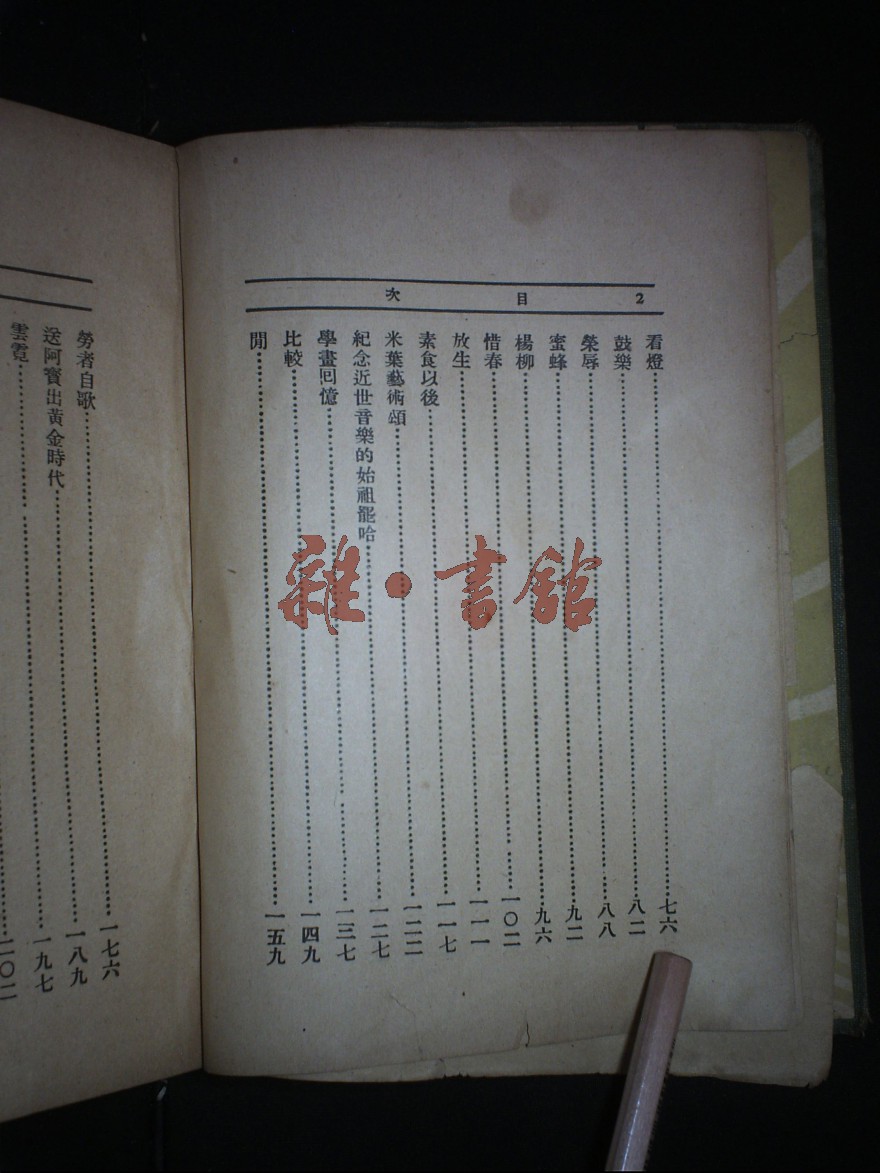 2 目次
看燈……七六
鼓樂……八二
榮辱……八八
蜜蜂……九二
楊柳……九六
惜春……一〇二
放生……一一一
素食以後……一一七
米葉藝術頌……一二二
紀念近世音樂的始祖罷哈……一二七
學畫回憶……一三七
比較……一四九
閒……一五九
勞者自歌……一七六
送阿寶出黃金時代……一八九
雲霓……一九七
二〇二
雜·書館